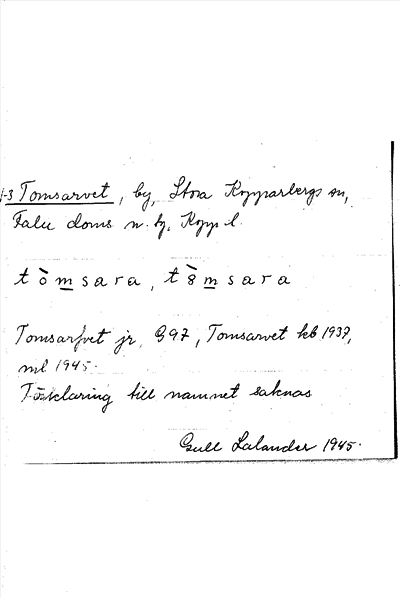 1-3 Tomsarvet, by, Stora Kopparbergs sn,
Falu doms n. tg, Kopp l.
tòmsara, t8̀msara
Tomsarfvet jr, G97, Tomsarvet kb 1937,
ml 1945.
Förklaring till namnet saknas
Gull Lalander 1945.